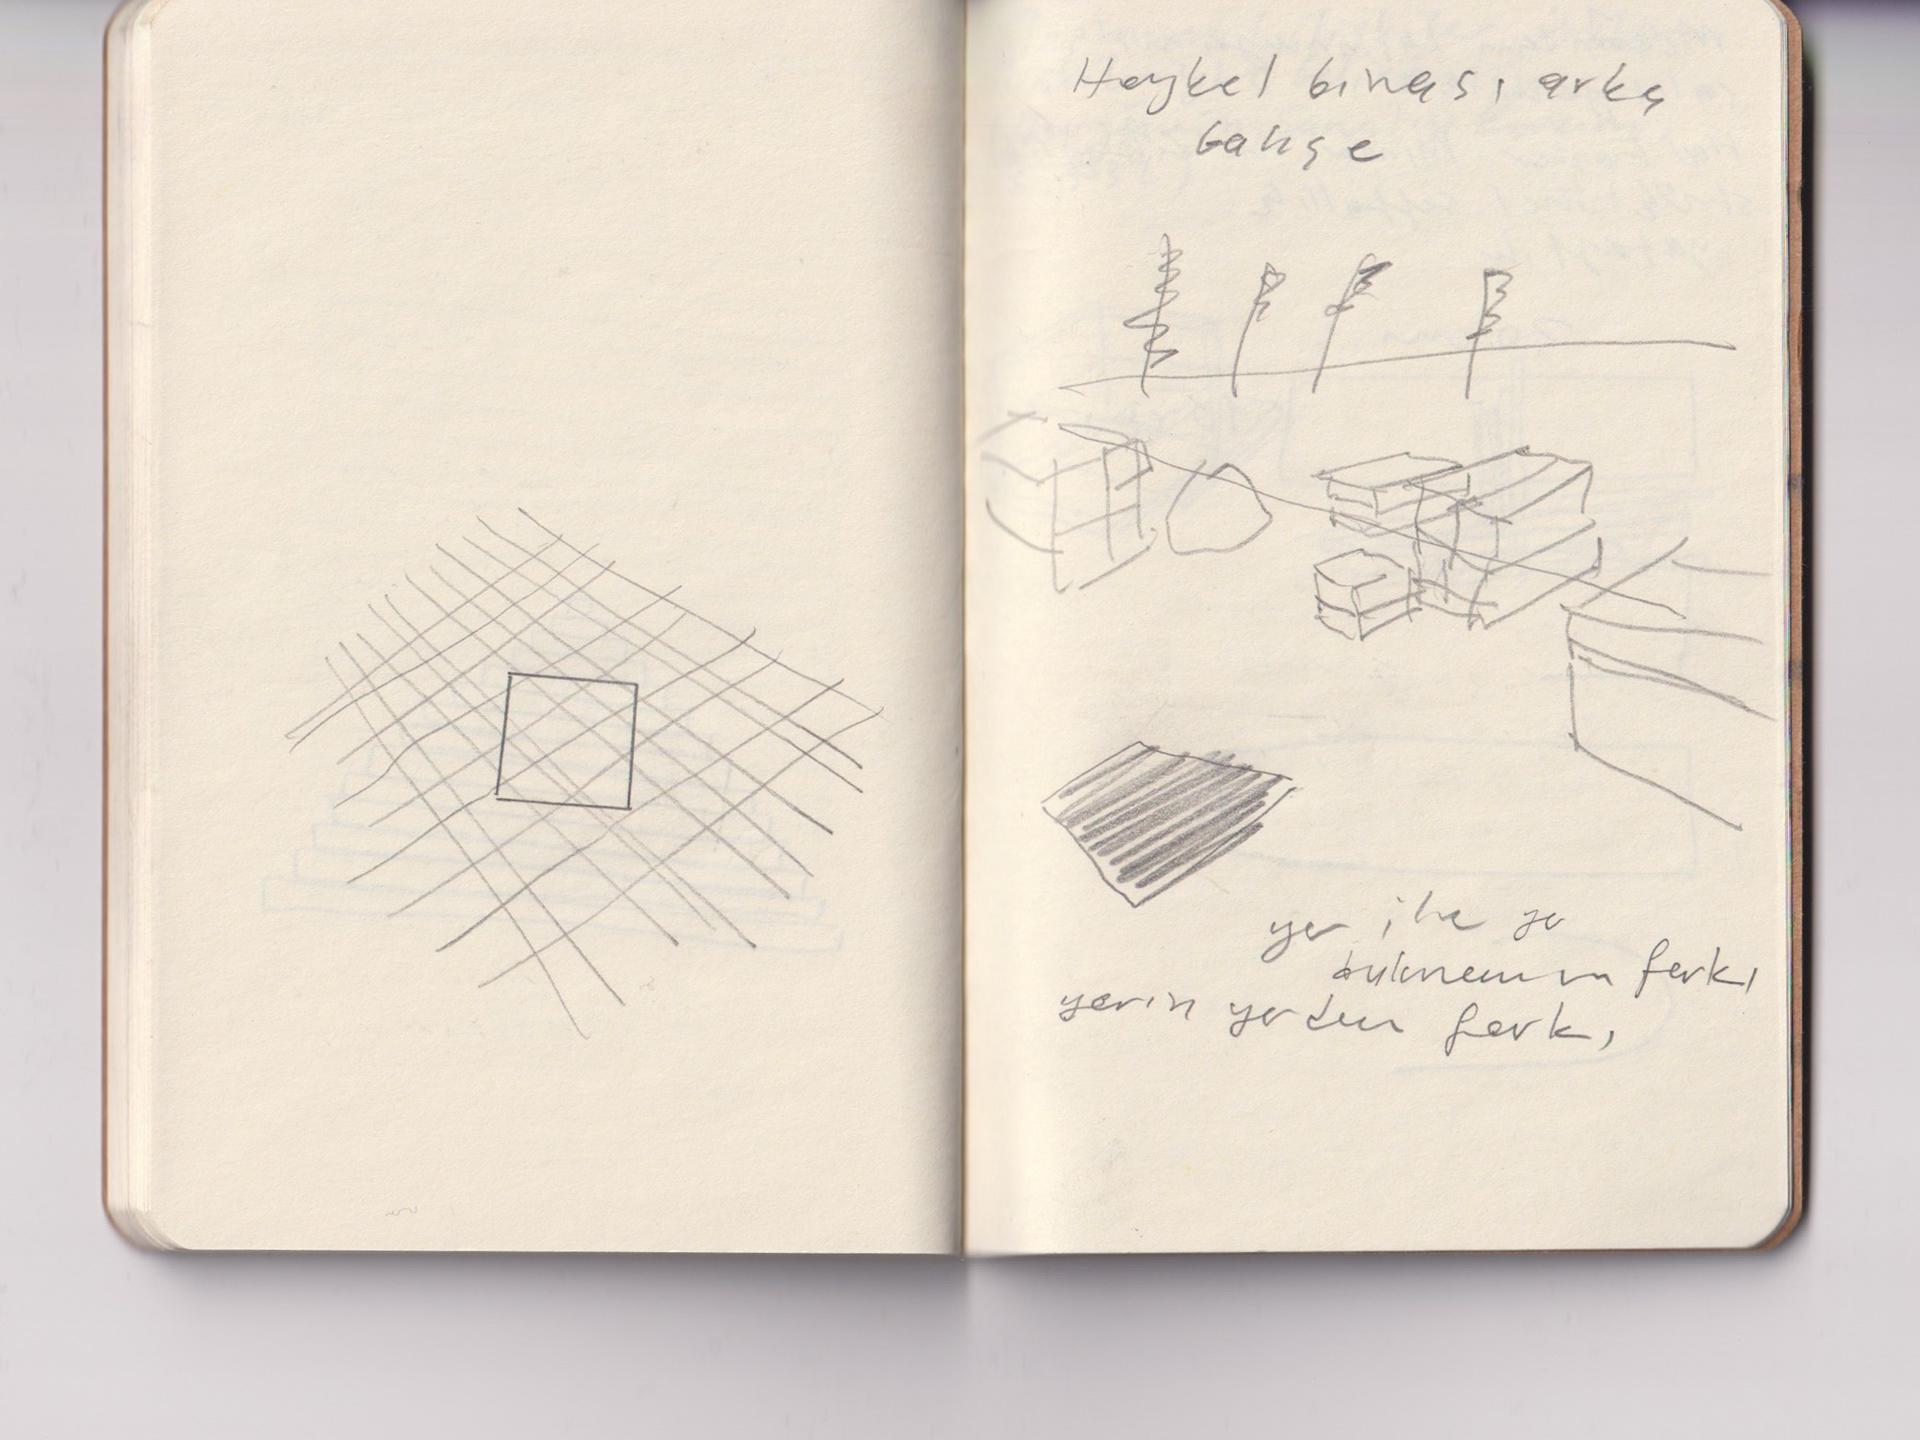 Heykel binası arka
bahçe
yer ile ye
farkı
yerin yerden farkı